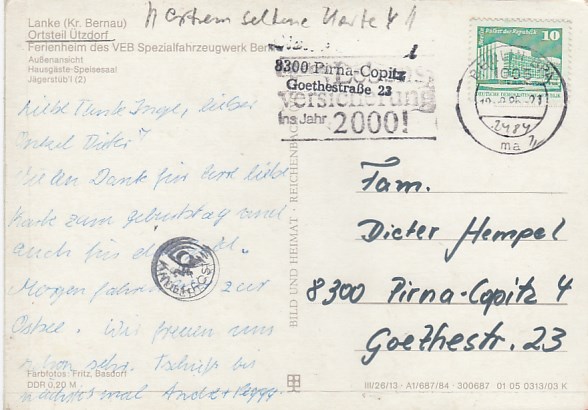 !! extrem seltene Karte !!
Lanke (Kr. Bernau)
Ortsteil Ützdorf
Ferienheim des VEB Spezialfahrzeugwerk Berlin
Außenansicht
Hausgäste-Speisesaal
Jägerstüb'l (2)
8300 Pirna-Copitz
Goethestraße 23
versicherung
Ins Jahr 2000!
Palast der Republik 10
DEUTSCHE DEMOKRATISCHE REPUBLIK
ma
Liebe Tante Inge, lieber
Onkel Dieter!
Vielen Dank für Eure liebe
Karte zum Geburtstag und
auch für
Morgen fahren zur
Ostsee. Wir freuen uns
schon sehr. Tschüß bis
nächstes mal André + Peggy
Fam.
Dieter Hempel
8300 Pirna-Copitz 4
Goethestr. 23
BILD UND HEIMAT · REICHENBACH
Farbfotos: Fritz, Basdorf
DDR 0,20 M
III/26/13 · A1/687/84 · 300687 01 05 0313/03 K